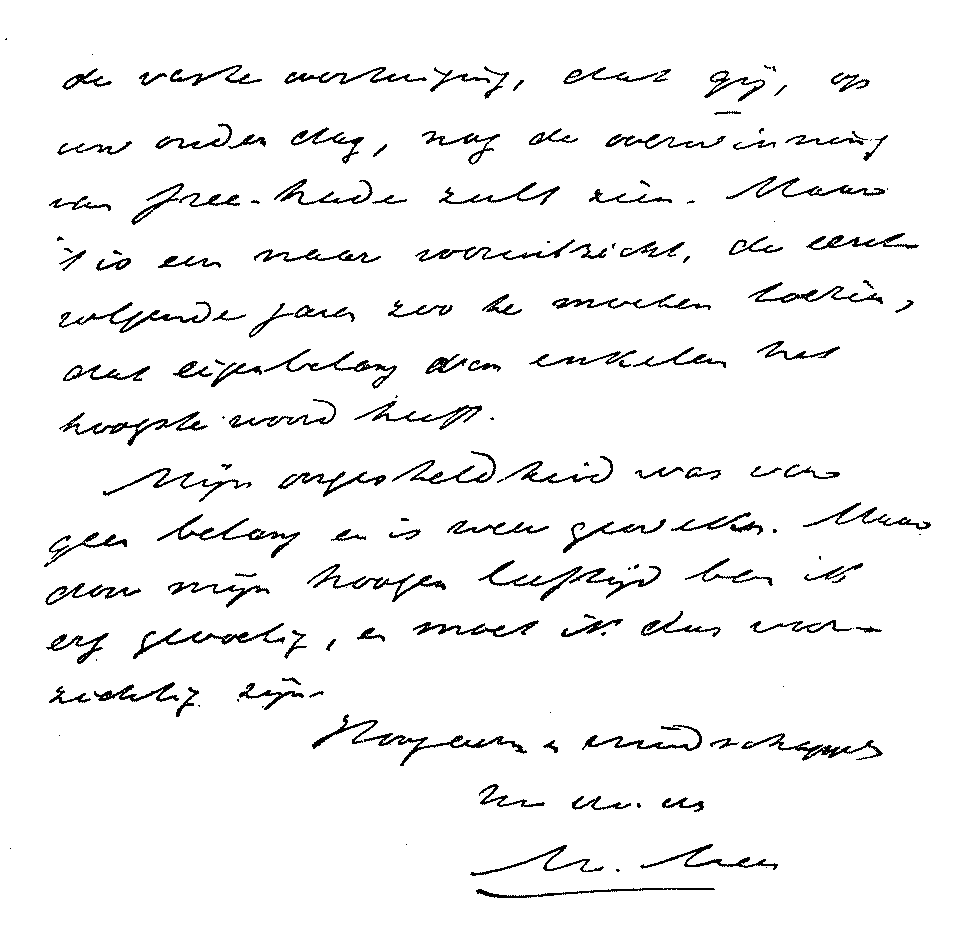 de vaste overtuiging, dat gij, op
uw ouden dag, nog de overwinning
van free-trade zult zien. Maar
't is een naar vooruitzicht, de eerst-
volgende jaren zoo te moeten hooren,
dat eigenbelang van enkelen het
hoogste woord heeft.
Mijn ongesteldheid was van
geen belang en is weer geweken. Maar
door mijn hoogen leeftijd ben ik
erg gevoelig, en moet ik dus voor-
zichtig zijn.
Hoogac en vriendschappel
Mees